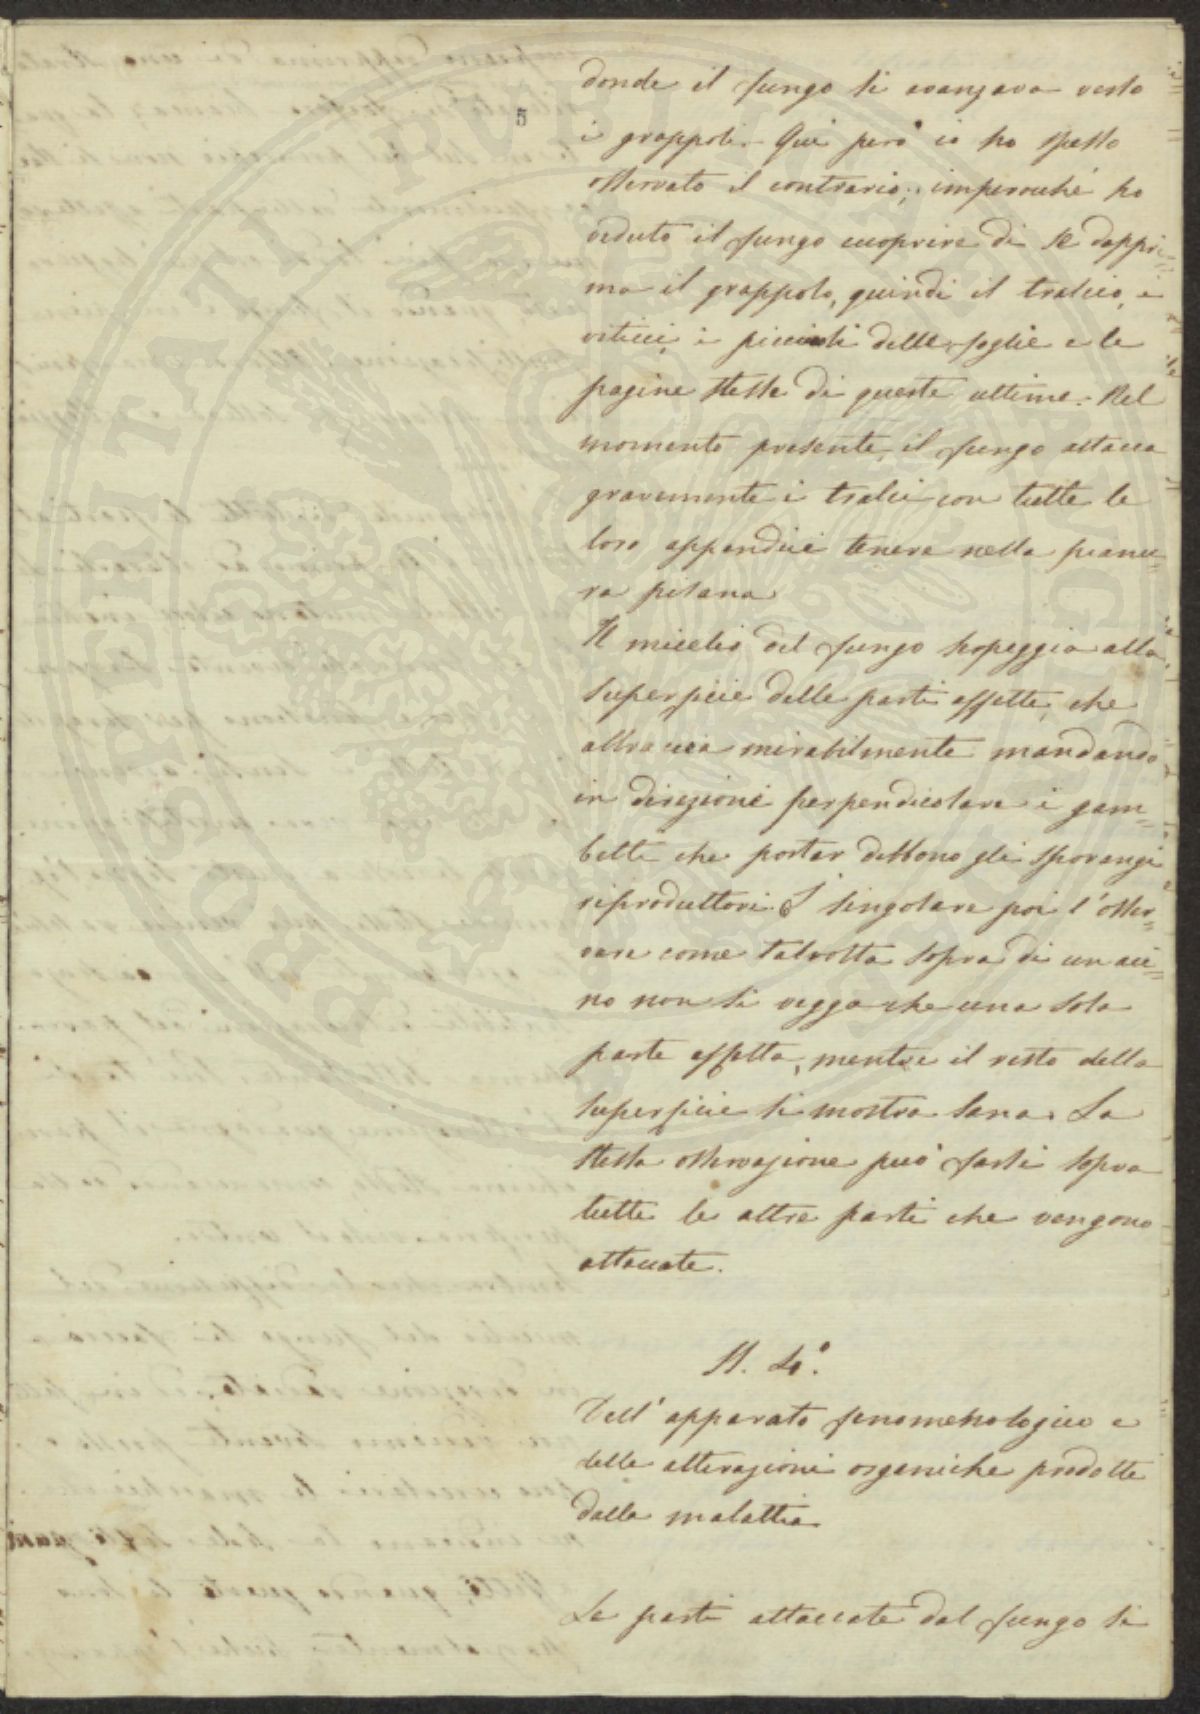 5
donde il fungo si avanzava verso
i grappoli. Qui però io ho spesso
osservato il contrario; imperocché ho
veduto il fungo cuoprire di se dappri
ma il grappolo, quindi il tralcio, i
viticci, i picciuoli delle foglie e le
pagine stesse di queste ultime. Nel
momento presente, il fungo attacca
gravemente i tralci con tutte le
loro appendici tenere nella pianu=
ra pisana
Il micelio del fungo serpeggia alla
superficie delle parti affette, che
abbraccia mirabilmente mandando
in direzione perpendicolare i gam=
betti che portar debbono gli sporangi
riproduttori. È singolare poi l'osser=
vare come talvolta sopra di un aci=
no non si vegga che una sola
parte affetta, mentre il resto della
superficie si mostra sana. La
stessa osservazione può farsi sopra
tutte le altre parti che vengono
attaccate.
N. 4.°
Dell'apparato fenomenologico e
delle alterazioni organiche prodotte
dalla malattia
Le parti attaccate dal fungo si
PROSPERITATI PUBLICAE AUGENDAE